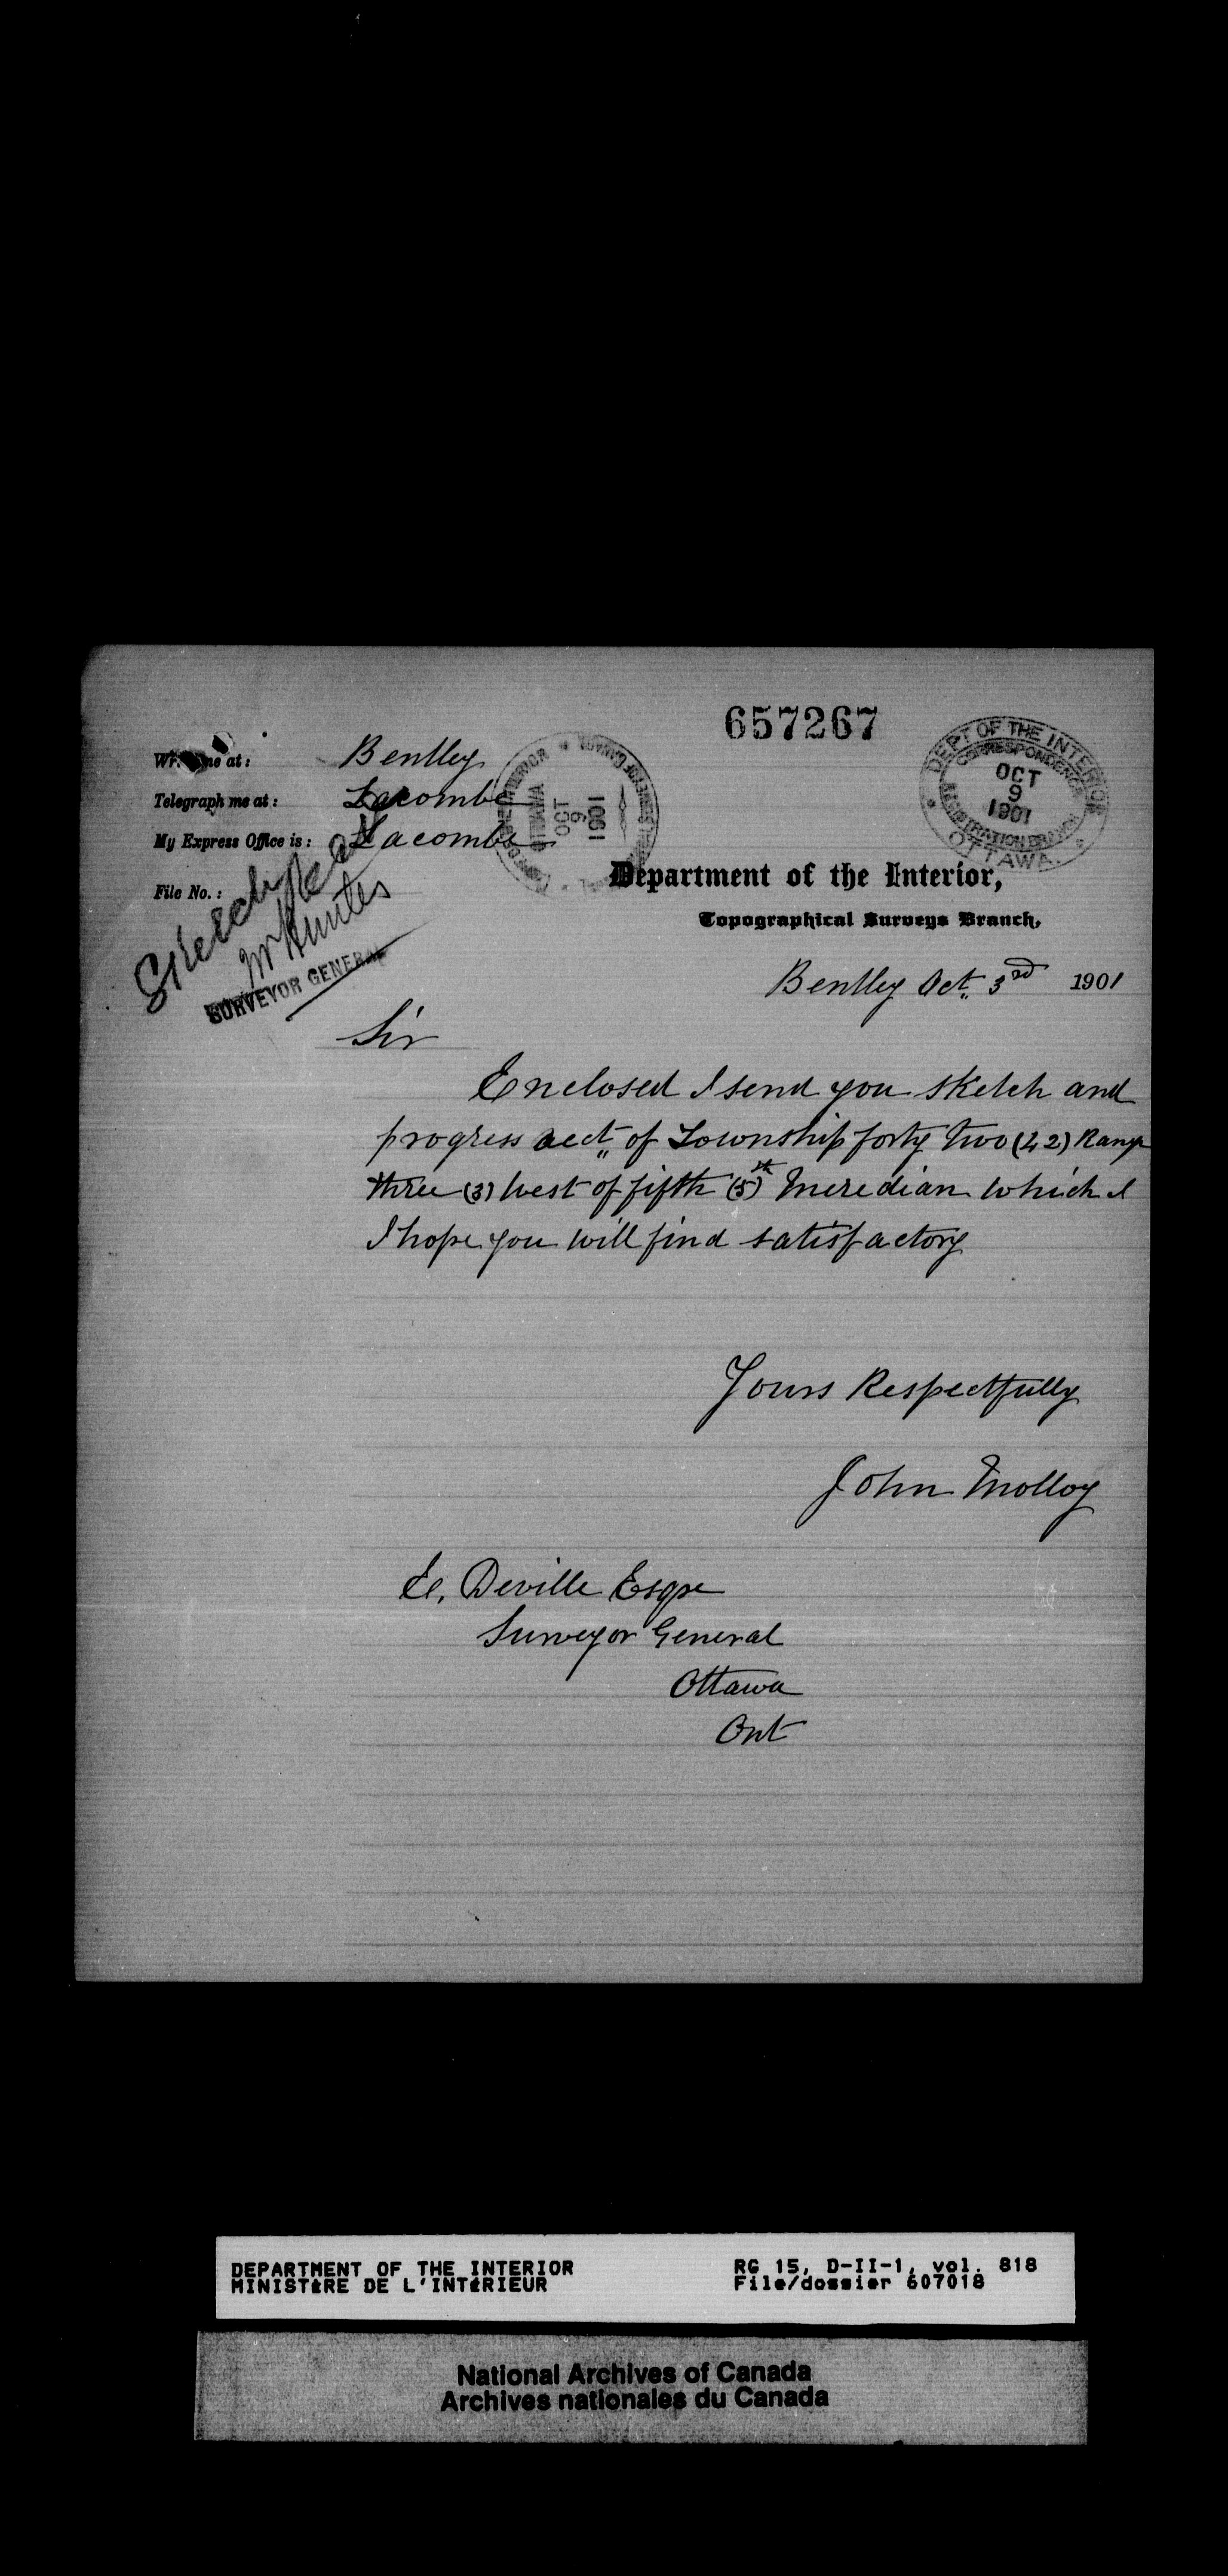 657267
DEPT OF THE INTERIOR
CORRESPONDENCE
OCT
9
1901
REGISTRATION BRANCH
OTTAWA
OTTAWA
OCT
9
1901
me at: Bentley
Telegraph me at: Lacombe
My Express Office is: Lacombe
File No.:
Sketch
Mr Hunter
SURVEYOR GENERAL
Department of the Interior,
Topographical Surveys Branch,
Bentley Oct. 3rd 1901
Sir
Enclosed I send you sketch and
progress acct. of Township forty two (42) Range
three (3) West of fifth (5)th Meredian which I
I hope you will find satisfactory
Yours Respectfully
John Molloy
E. Deville Esqre
Surveyor General
Ottawa
Ont
DEPARTMENT OF THE INTERIOR
MINISTÈRE DE L'INTÉRIEUR
RG 15, D-II-1, vol. 818
File/dossier 607018
National Archives of Canada
Archives nationales du Canada